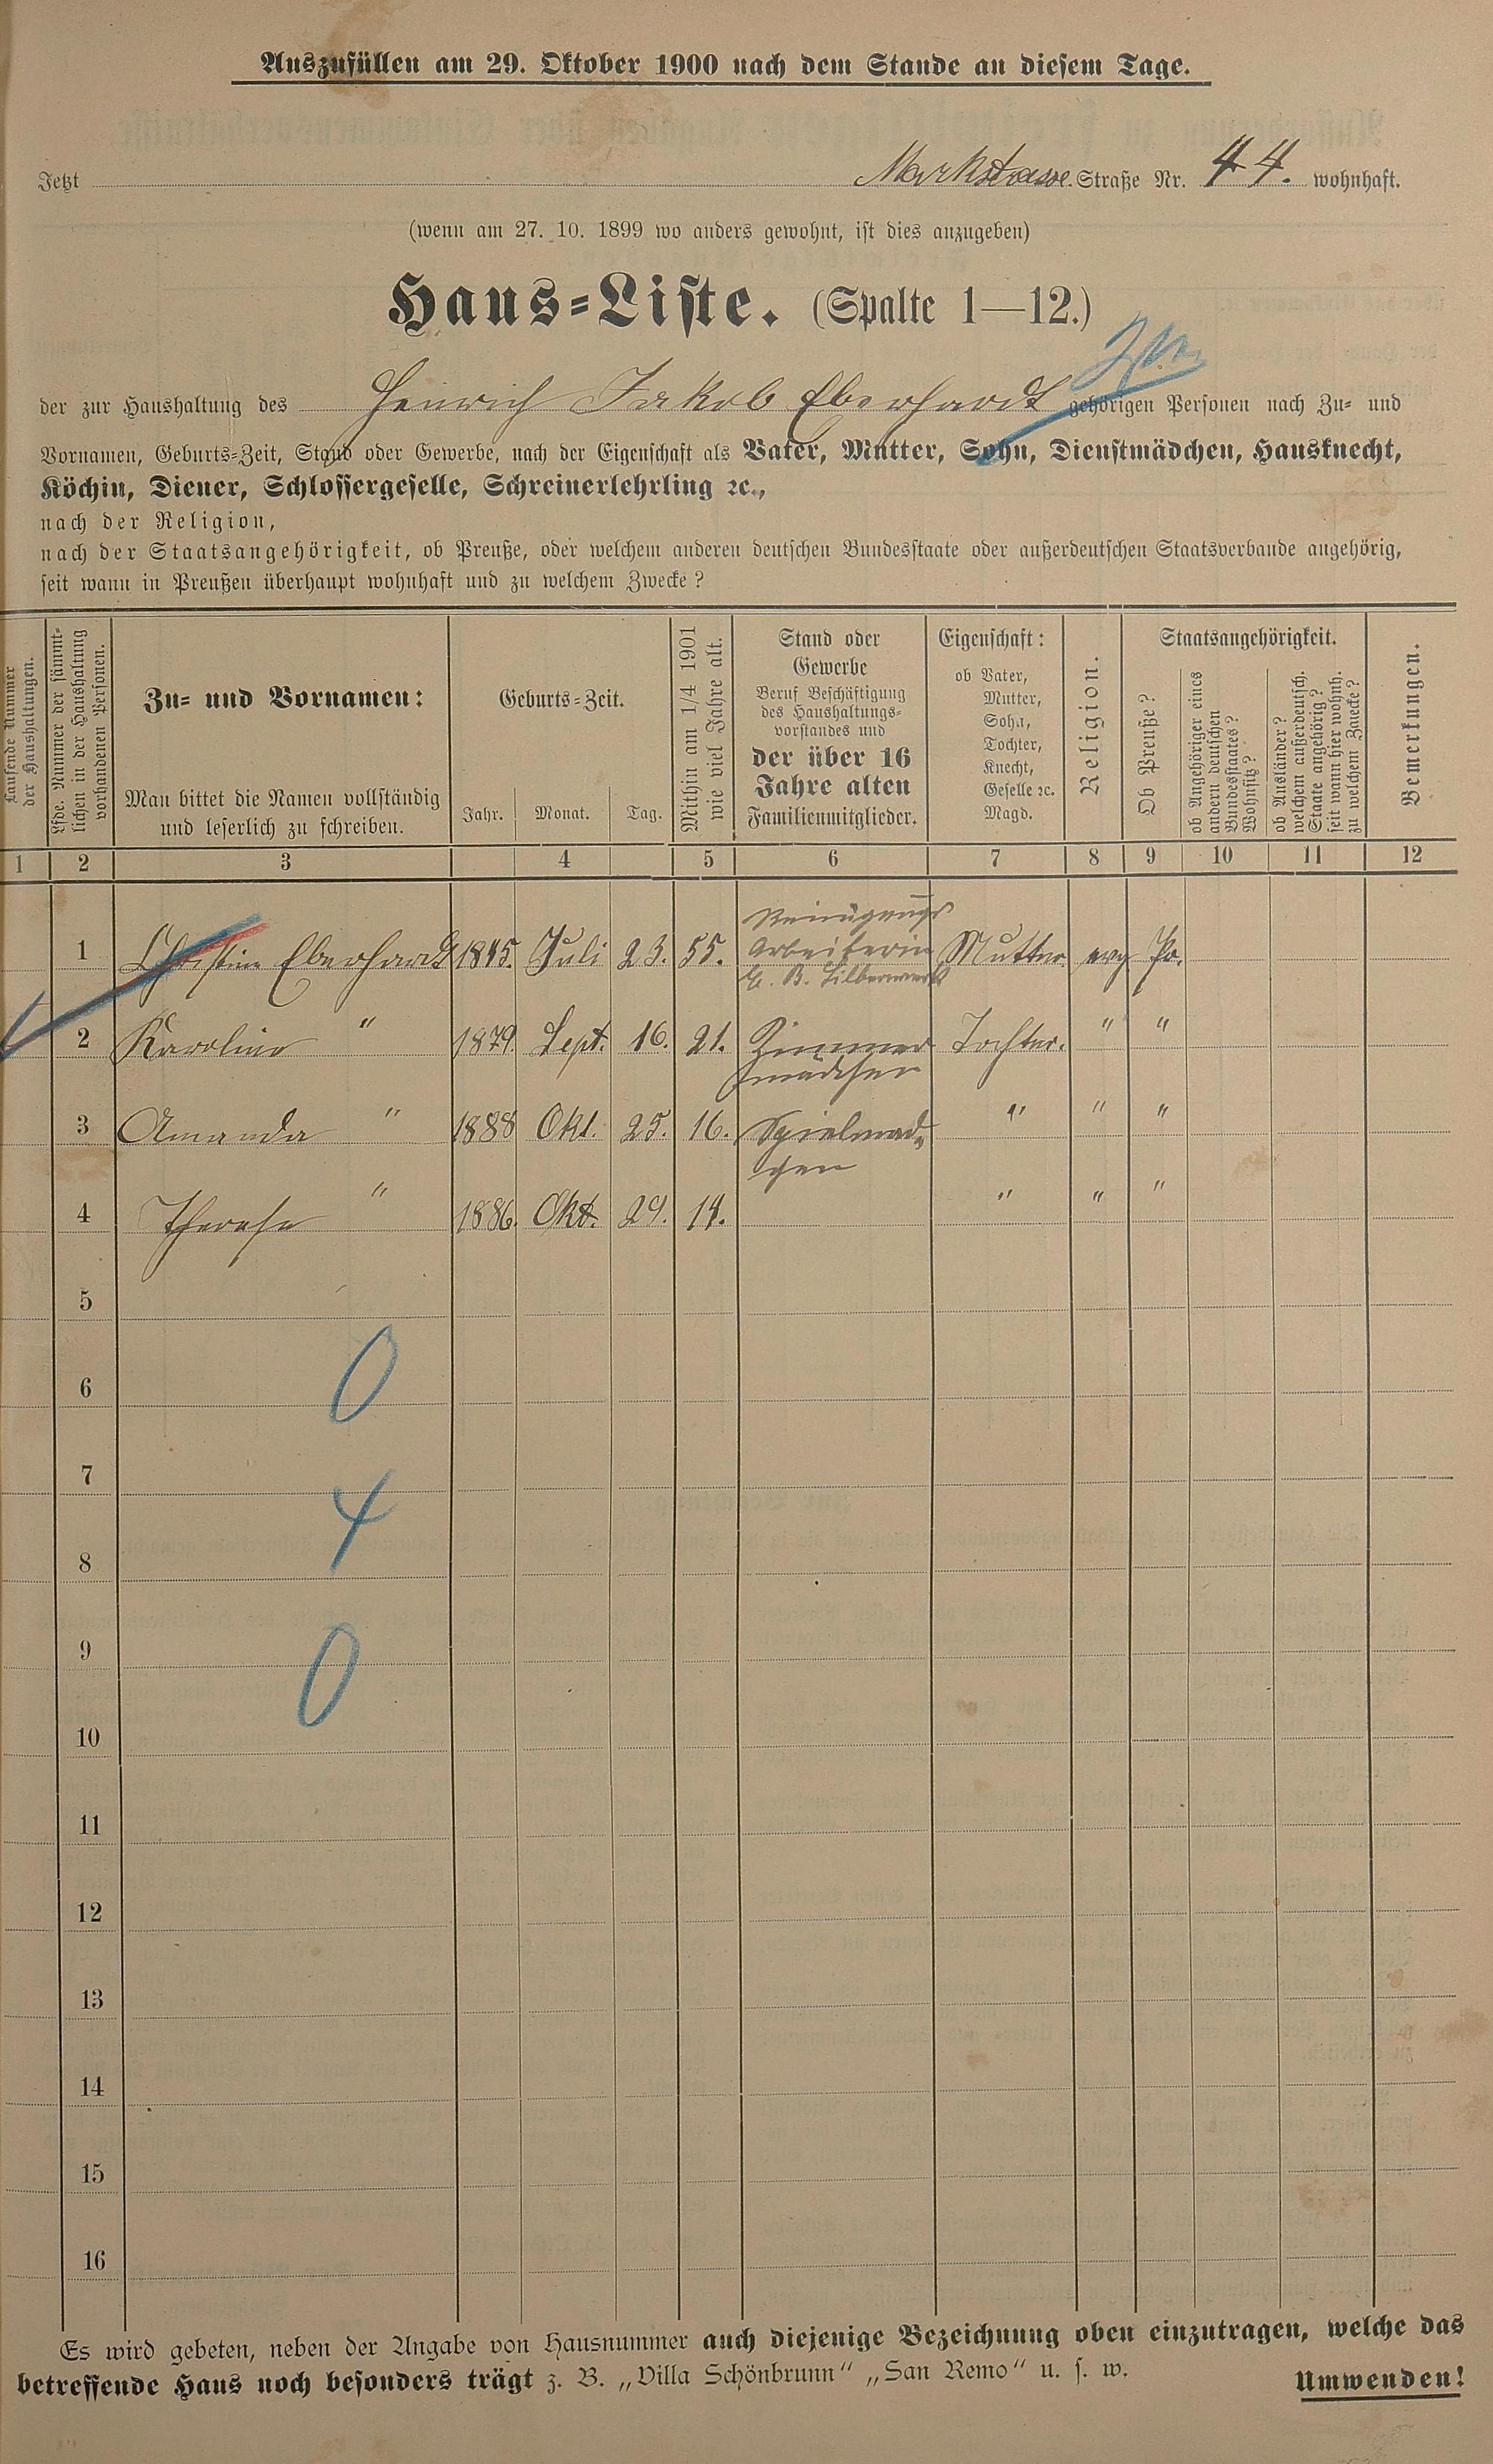 Auszufüllen am 29. Oktober 1900 nach dem Stande an diesem Tage.
Jetzt Markstrasse. Straße Nr. 44. wohnhaft.
(wenn am 27. 10. 1899 wo anders gewohnt, ist dies anzugeben)
Haus=Liste. (Spalte 1—12.)
der zur Haushaltung des Heinrich Jakob Eberhardt gehörigen Personen nach Zu= und
Vornamen, Geburts=Zeit, Stand oder Gewerbe, nach der Eigenschaft als Vater, Mutter, Sohn, Dienstmädchen, Hausknecht,
Köchin, Diener, Schlossergeselle, Schreinerlehrling ꝛc.,
nach der Religion,
nach der Staatsangehörigkeit, ob Preuße, oder welchem anderen deutschen Bundesstaate oder außerdeutschen Staatsverbande angehörig,
seit wann in Preußen überhaupt wohnhaft und zu welchem Zwecke?
Laufende Nummer
der Haushaltungen.
Lfde. Nummer der sämmt=
lichen in der Haushaltung
vorhandenen Personen.
Zu= und Vornamen:
Man bittet die Namen vollständig
und leserlich zu schreiben.
Geburts=Zeit.
Jahr. Monat. Tag.
Mithin am 1/4 1901
wie viel Jahre alt.
Stand oder
Gewerbe
Beruf Beschäftigung
des Haushaltungs=
vorstandes und
der über 16
Jahre alten
Familienmitglieder.
Eigenschaft:
ob Vater,
Mutter,
Sohn,
Tochter,
Knecht,
Geselle ꝛc.
Magd.
Religion.
Staatsangehörigkeit.
Ob Preuße?
ob Angehöriger eines
andern deutschen
Bundesstaates?
Wohnsitz?
ob Ausländer?
welchem außerdeutsch.
Staate angehörig?
seit wann hier wohnh.
zu welchem Zwecke?
Bemerkungen.
1 2 3 4 5 6 7 8 9 10 11 12
Reinigungs
1 Christine Eberhardt 1845. Juli 23. 55. Arbeiterin Mutter. evg Pr.
2 Karoline " 1879. Sept. 16. 21. Zimmer Tochter. " "
mädchen
3 Amanda " 1888 Okt. 25. 16. Spielmäd= " " "
gen
4 Therese " 1886. Okt. 29. 14. " " "
5
6 0
7
8 4
9 0
10
11
12
13
14
15
16
Es wird gebeten, neben der Angabe von Hausnummer auch diejenige Bezeichnung oben einzutragen, welche das
betreffende Haus noch besonders trägt z. B. „Villa Schönbrunn" „San Remo" u. s. w.
Umwenden!